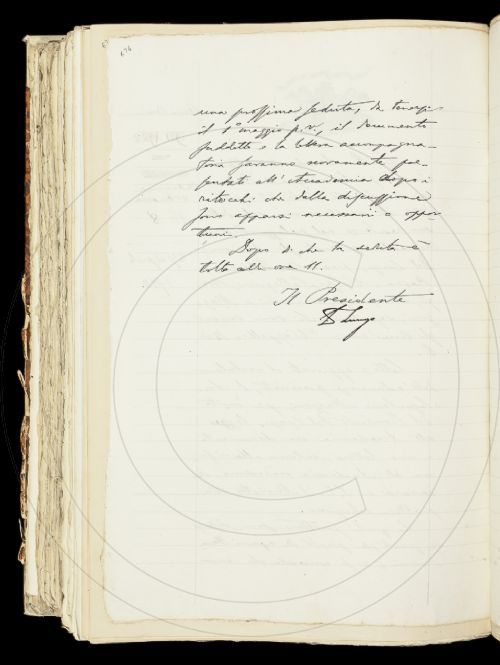 674
una prossima seduta, da tenersi
il 1° maggio p.v., il documento
suddetto e la lettera accompagna-
toria saranno nuovamente pre-
sentati all'Accademia dopo i
ritocchi che dalla discussione
sono apparsi necessari o oppor
tuni.
Dopo di che la seduta è
tolta alle ore 11.
Il Presidente